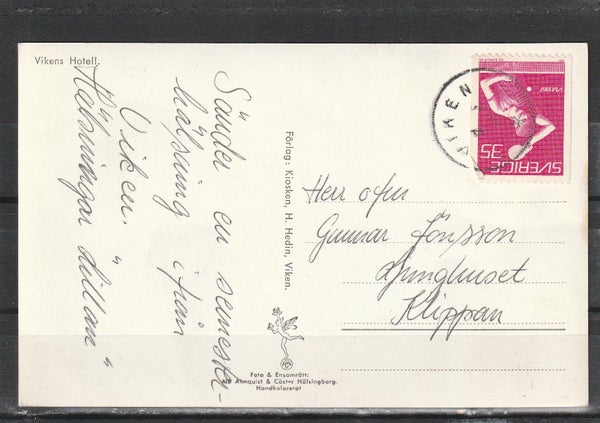 Vikens Hotell.
Sänder en semester-
hälsning från
Viken.
Hälsningar Lillan
Förlag: Kiosken, H. Hedin, Viken.
Foto & Ensamrätt:
A/B Almquist & Cöster Hälsingborg.
Handkolorerat
VIKEN
SVERIGE 35
Herr o fru
Gunnar Jönsson
Ljunghuset
Klippan